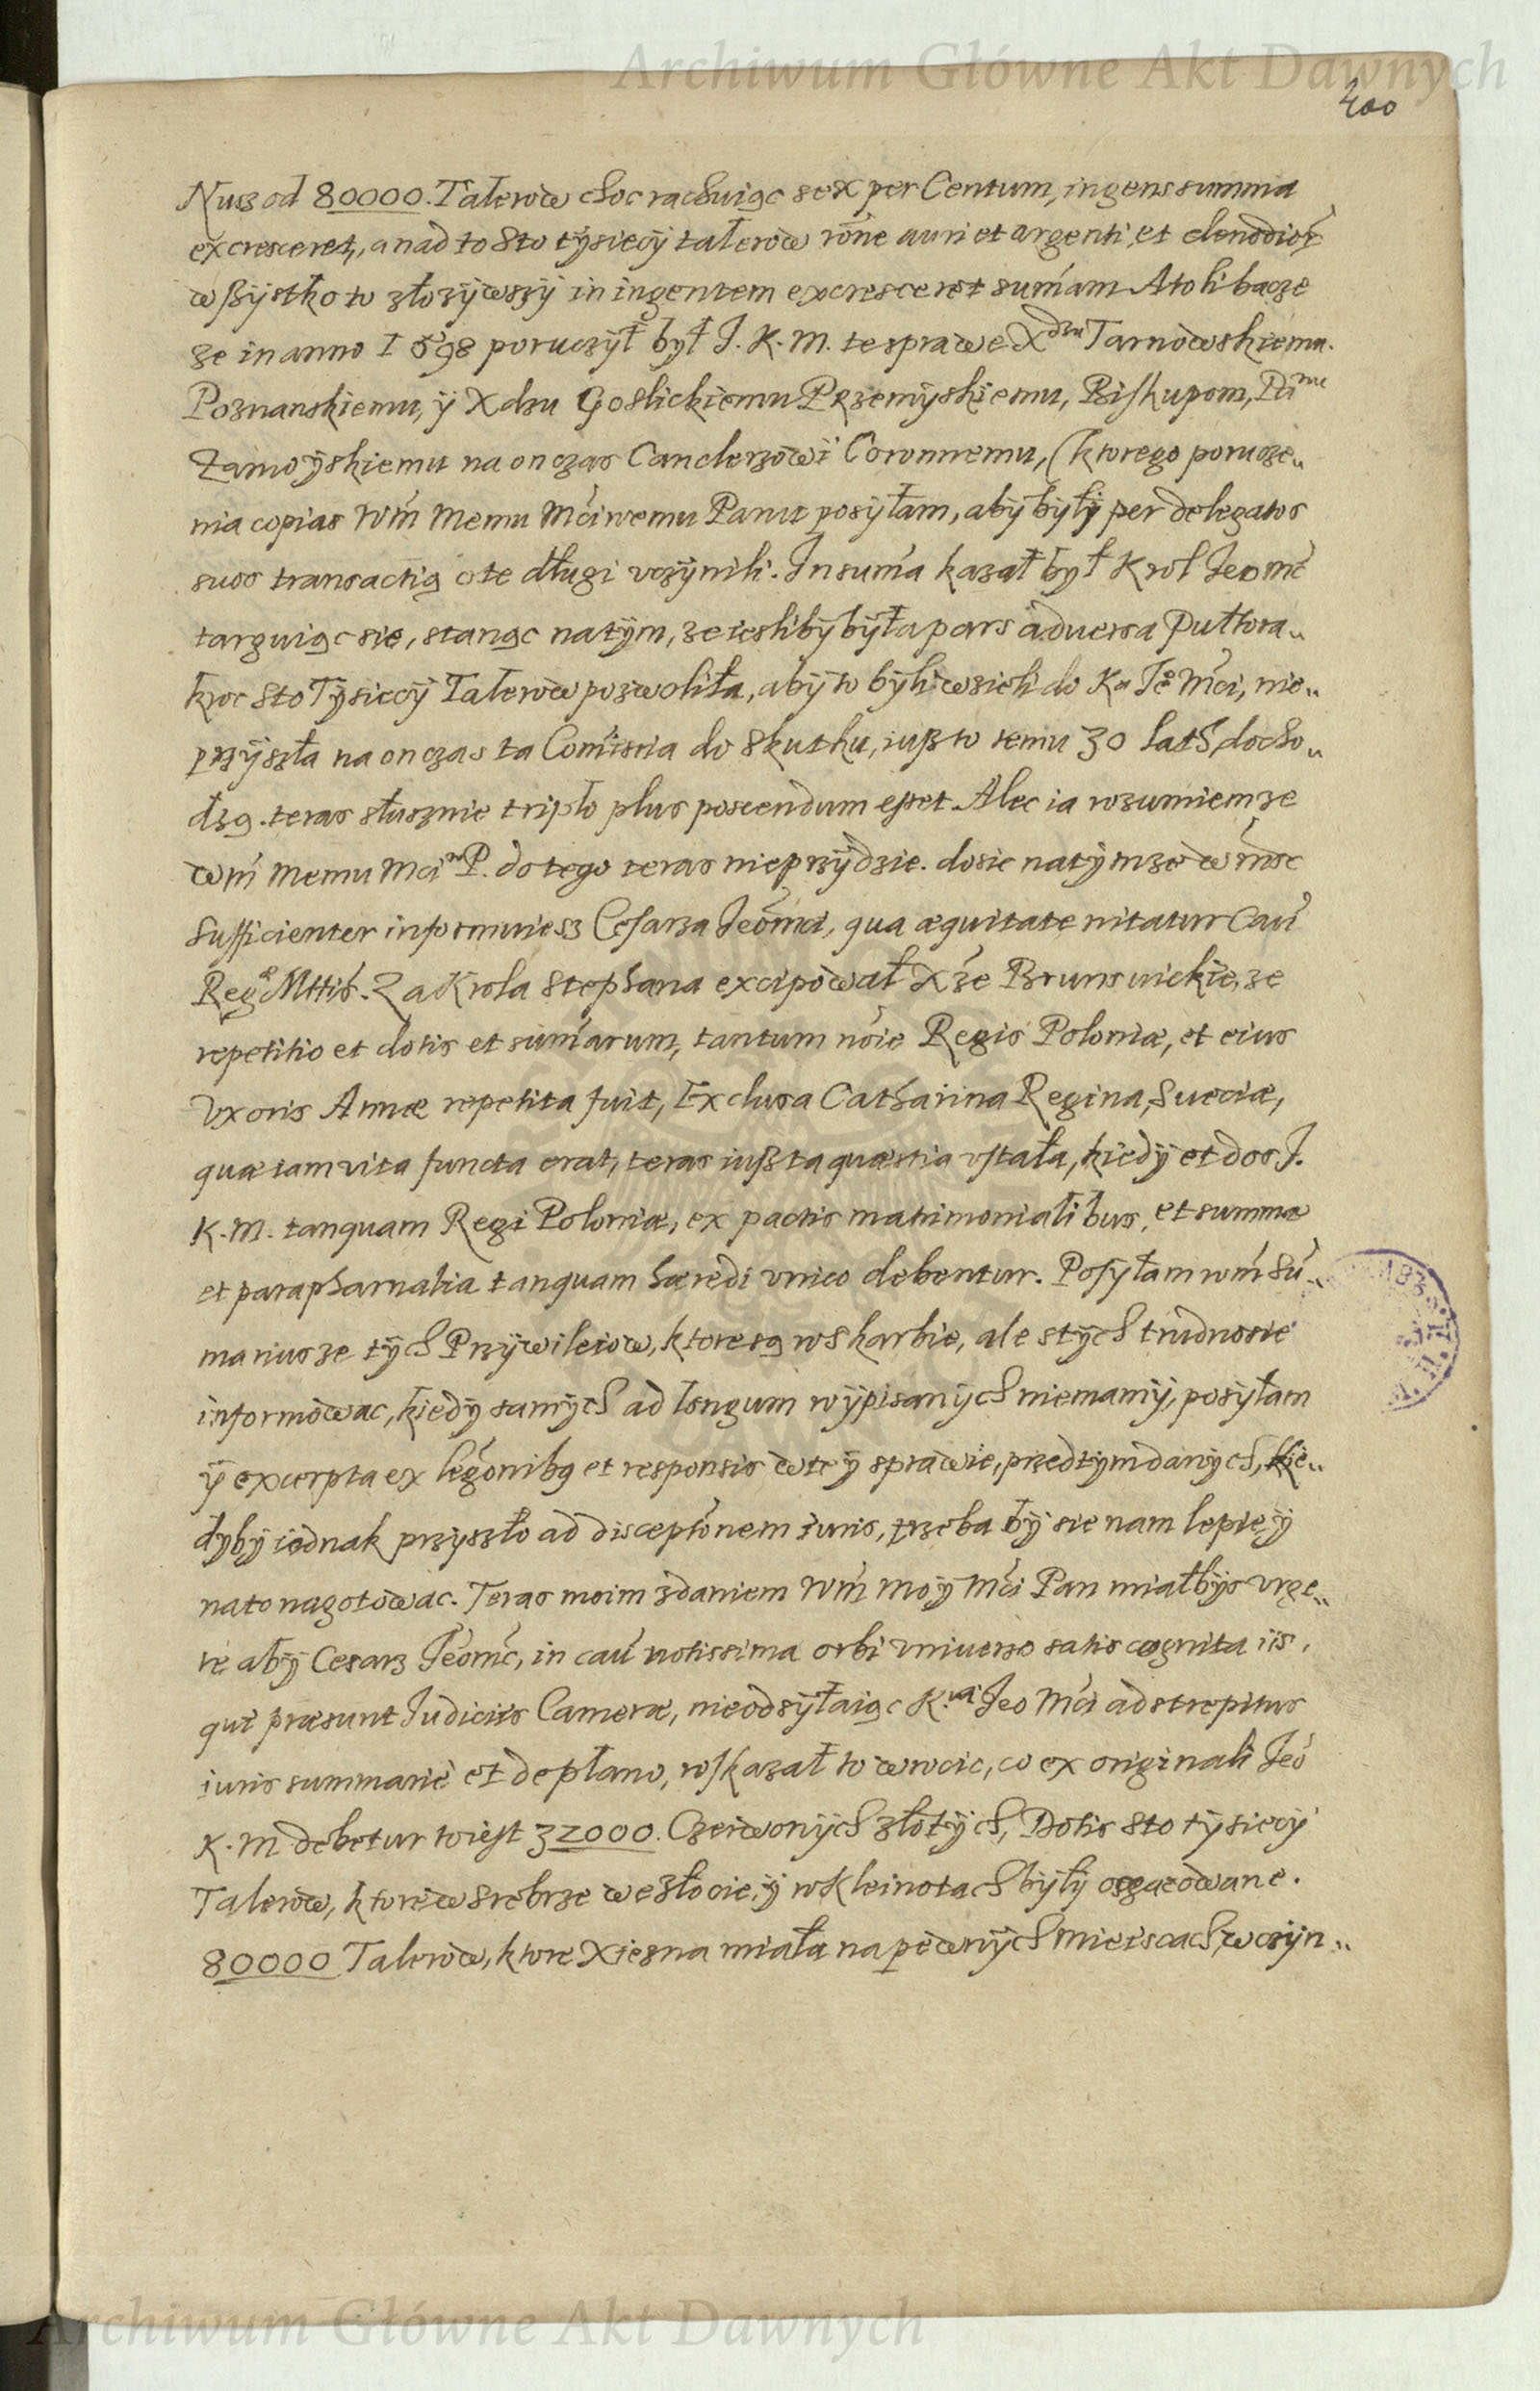 Archiwum Główne Akt Dawnych
400
Nusz od 80000. Talerow choc rachuiąc sex per Centum, ingens summa
excresceret, a nad to Sto tÿsiecÿ talerow rõne auri et argenti, et clenodior
wßÿstko to złozÿwszÿ in ingentem excresceret sumám Atoli bacze
ze in anno 1598 poruczÿł bÿł J. K. M. te sprawe Xdzu Tarnowskiemu.
Poznanskiemu, ÿ Xdzu Goslickiemu Przemÿskiemu, Biskupom, Pánu
Zamoÿskiemu na on czas Canclerzowi Coronnemu, (ktorego porucze„
nia copias Wḿ Memu Mćiwemu Panu posÿłam, abÿ bÿłÿ per delegatos
suos transactią o te długi vczÿnili. In suḿa kazał bÿł Krol Jeomć
targuiąc sie, stanąc na tÿm, ze iesliby bÿła pars aduersa Pułtora„
kroc Sto Tÿsiecÿ Talerow pozwoliła, abÿ to bÿli wzieli do Ka Je° Mći, nie„
przÿszła na on czas ta Comíssia do Skutku, iuß to temu 30 Lath, docho„
dzą. teras słusznie triplo plus poscendum esset. Alec ia rozumiem ze
wḿ Memu Mćiu P. do tego teras nie przÿdzie. dosic na tÿm ze wḿsc
sufficienter informuiesz Cesarza Jeomći, qua æquitate nitatur Caú
Regæ Mttis. Za Krola Stephana excipował Xże Brunsuickie, ze
repetitio et dotis et sumárum, tantum nóie Regis Poloniæ, et eius
Vxoris Annæ repetita fuit, Exclusa Catharina Regina, Sueciæ,
quæ iam vita functa erat, teras iuß ta quæstia vstała, kiedÿ et dos J.
K. M. tanquam Regi Poloniæ, ex pactis matrimonialibus, et summæ
et parapharnalia tanquam hæredi vnico debentur. Posÿłam wḿ Sú„
mariusze tÿch Przÿwileiow, ktore są w Skarbie, ale s tÿch trudno sie
informowac, kiedÿ samÿch ad longum wÿpisanÿch niemamÿ, posÿłam
ÿ excerpta ex legónibq et responsis w teÿ sprawie, przed tÿm danÿch, Kie„
dyby iednak przyszło ad disceptónem iuris, trzeba bÿ sie nam lepieÿ
na to nagotowac. Teras moim zdaniem Wḿ Moÿ Mći Pan miałbÿs vrge„
re abÿ Cesarz Jeomć, in caú notissima orbi vniuerso satis cognita iis,
qui præsunt Judiciis Cameræ, nie odsÿłaiąc K.ła Jeo Mći ad strepitus
iuris summarie et de plano, wskazał to wrocic, co ex originali Jeo
K. M debetur to iest 32000. Czerwonÿch złotÿch, Dotis sto tÿsiecÿ
Talerow, ktore w Srebrze we złocie, ÿ w Kleinotach bÿłÿ oszacowane.
80000 Talerow, ktore Xiezna miała na pewnÿch mieiscach, w czÿn„
Archiwum Główne Akt Dawnych